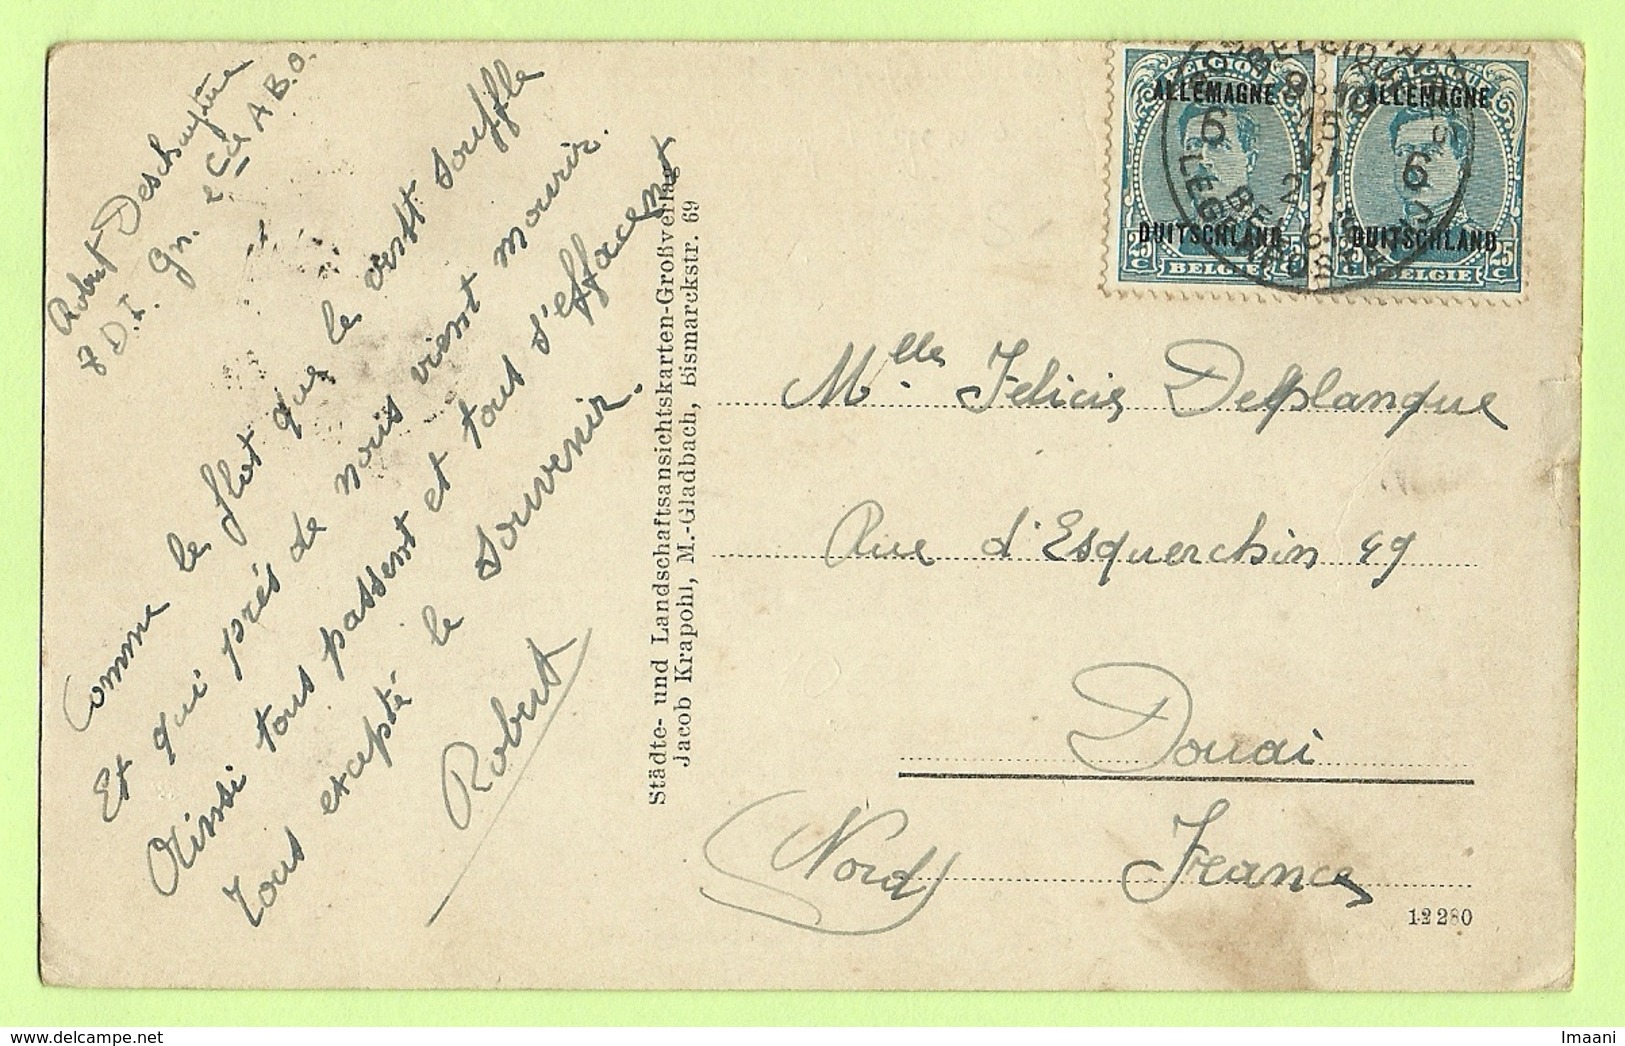 Robert Deschuytère
7 D.I. Gn. 2e Cie A.B.O.
Comme le flot que le vent souffle
Et qui près de nous vient mourir.
Ainsi tous passent et tout s'effacent
Tous excepté le souvenir.
Robert
Städte- und Landschaftsansichtskarten-Großverlag
Jacob Krapohl, M.-Gladbach, Bismarckstr. 69
BELGIQUE
ALLEMAGNE
DUITSCHLAND
25 C BELGIE 25 C
BELGIQUE
ALLEMAGNE
DUITSCHLAND
25 C BELGIE 25 C
6 6
15
VI
21
LEGERPOSTERIJ
Mlle. Félicie Delplanque
Rue d'Esquerchin 49
Douai
(Nord) France
12280
Imaani